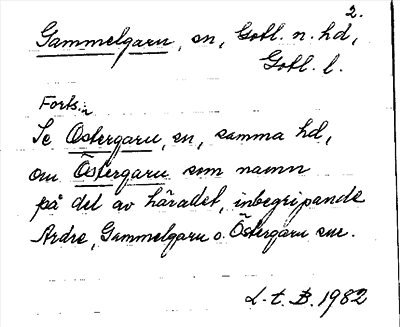 2.
Gammelgarn, sn, Gotl. n. hd,
Gotl. l.
Forts.
Se Östergarn, sn, samma hd,
om Östergarn som namn
på del av häradet, inbegripande
Ardre, Gammelgarn o. Östergarn snr.
L. t. B. 1982